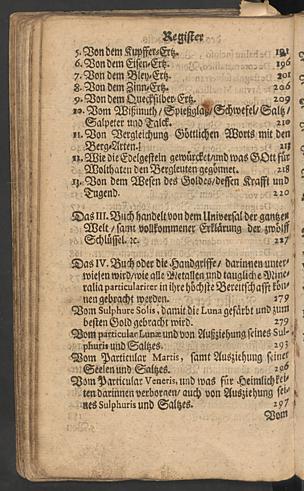 Register
5. Von dem Kupffer-Ertz. 191
6. Von dem Eisen-Ertz. 196
7. Von dem Bley-Ertz. 201
8. Von dem Zinn-Ertz. 206
9. Von dem Quecksilber Ertz. 209
10. Vom Wißmuth/ Spießglaß/ Schwefel/ Saltz/
Salpeter und Talck. 210
11. Von Vergleichung Göttlichen Worts mit den
Berg-Arten. 213
12. Wie die Edelgestein gewürcket/und was GOtt für
Wolthaten den Bergleuten gegönnet. 218
13. Von dem Wesen des Goldes/dessen Krafft und
Tugend. 220
Das III. Buch handelt von dem Universal der gantzen
Welt/ samt vollkommener Erklärung der zwölff
Schlüssel. ꝛc. 227
Das IV. Buch oder die Handgriffe/ darinnen unter-
wiesen wird/wie alle Metallen und taugliche Mine-
ralia particulariter in ihre höchste Bereitschafft kön-
nen gebracht werden. 279
Vom Sulphure Solis, damit die Luna gefärbt und zum
besten Gold gebracht wird. 279
Vom particular Lunæ und von Außziehung seines Sul-
phuris und Saltzes. 293
Vom Particular Martis, samt Ausziehung seiner
Seelen und Saltzes. 296
Vom Particular Veneris, und was für Heimlichkei-
ten darinnen verborgen/ auch von Ausziehung sei-
nes Sulphuris und Saltzes. 297
Vom